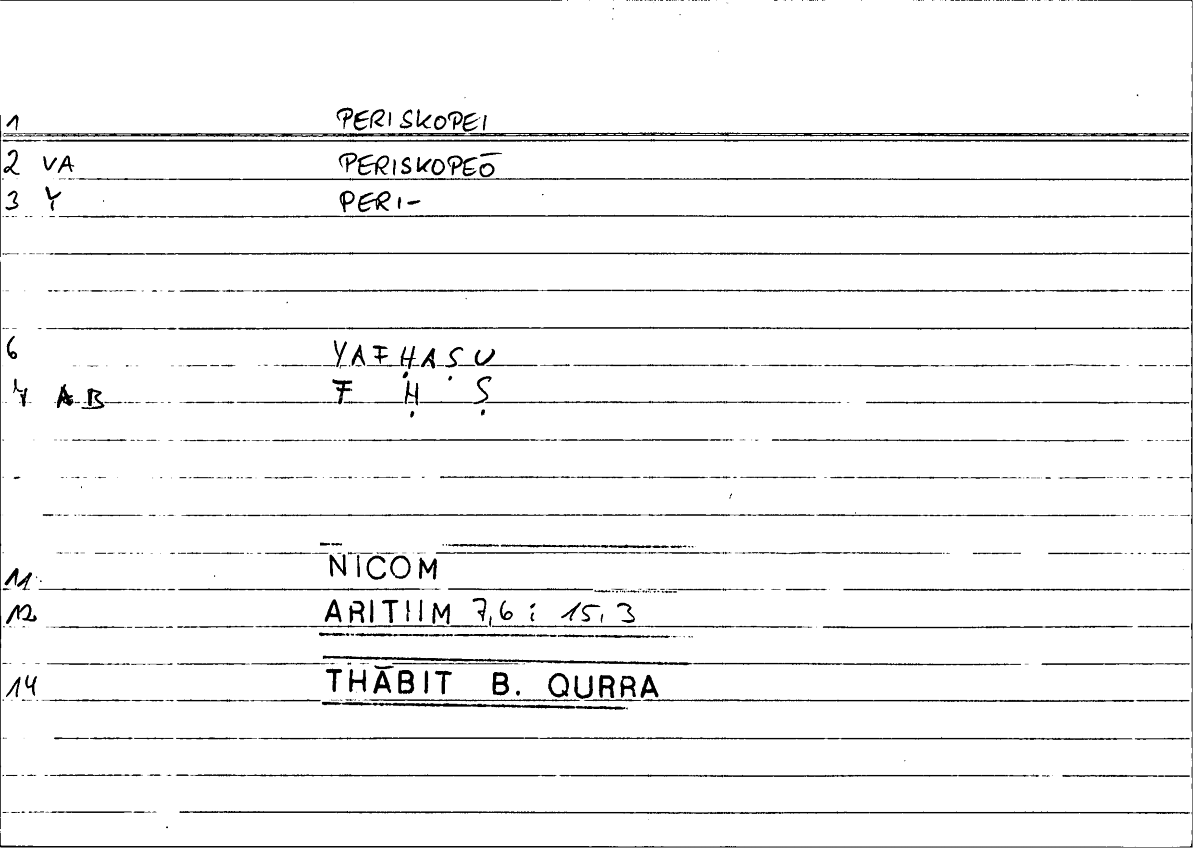 1 PERISKOPEI
2 VA PERISKOPEŌ
3 Y PERI-
6 YAFḤAṢU
Y AB F Ḥ Ṣ
11 NICOM
12 ARITIIM 7,6 ; 15,3
14 THĀBIT B. QURRA